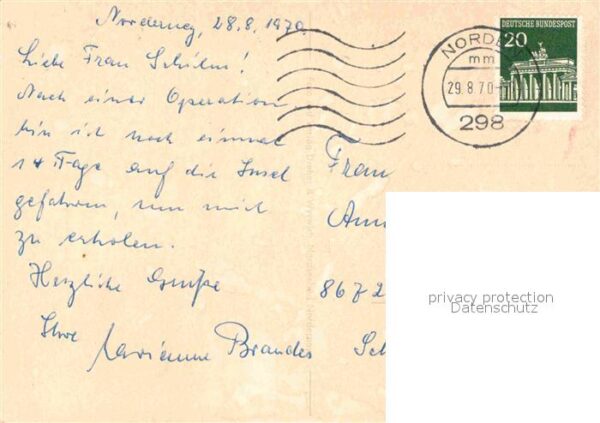 Norderney, 28.8.1970
Liebe Frau Schülm!
Nach einer Operation
bin ich noch einmal
14 Tage auf die Insel
gefahren, um mich
zu erholen.
Herzliche Grüße
Ihre
Marianne Brandes
DEUTSCHE BUNDESPOST
20
NORDE
mm
29.8.70
298
Frau
Ann
8672
Sel
privacy protection
Datenschutz